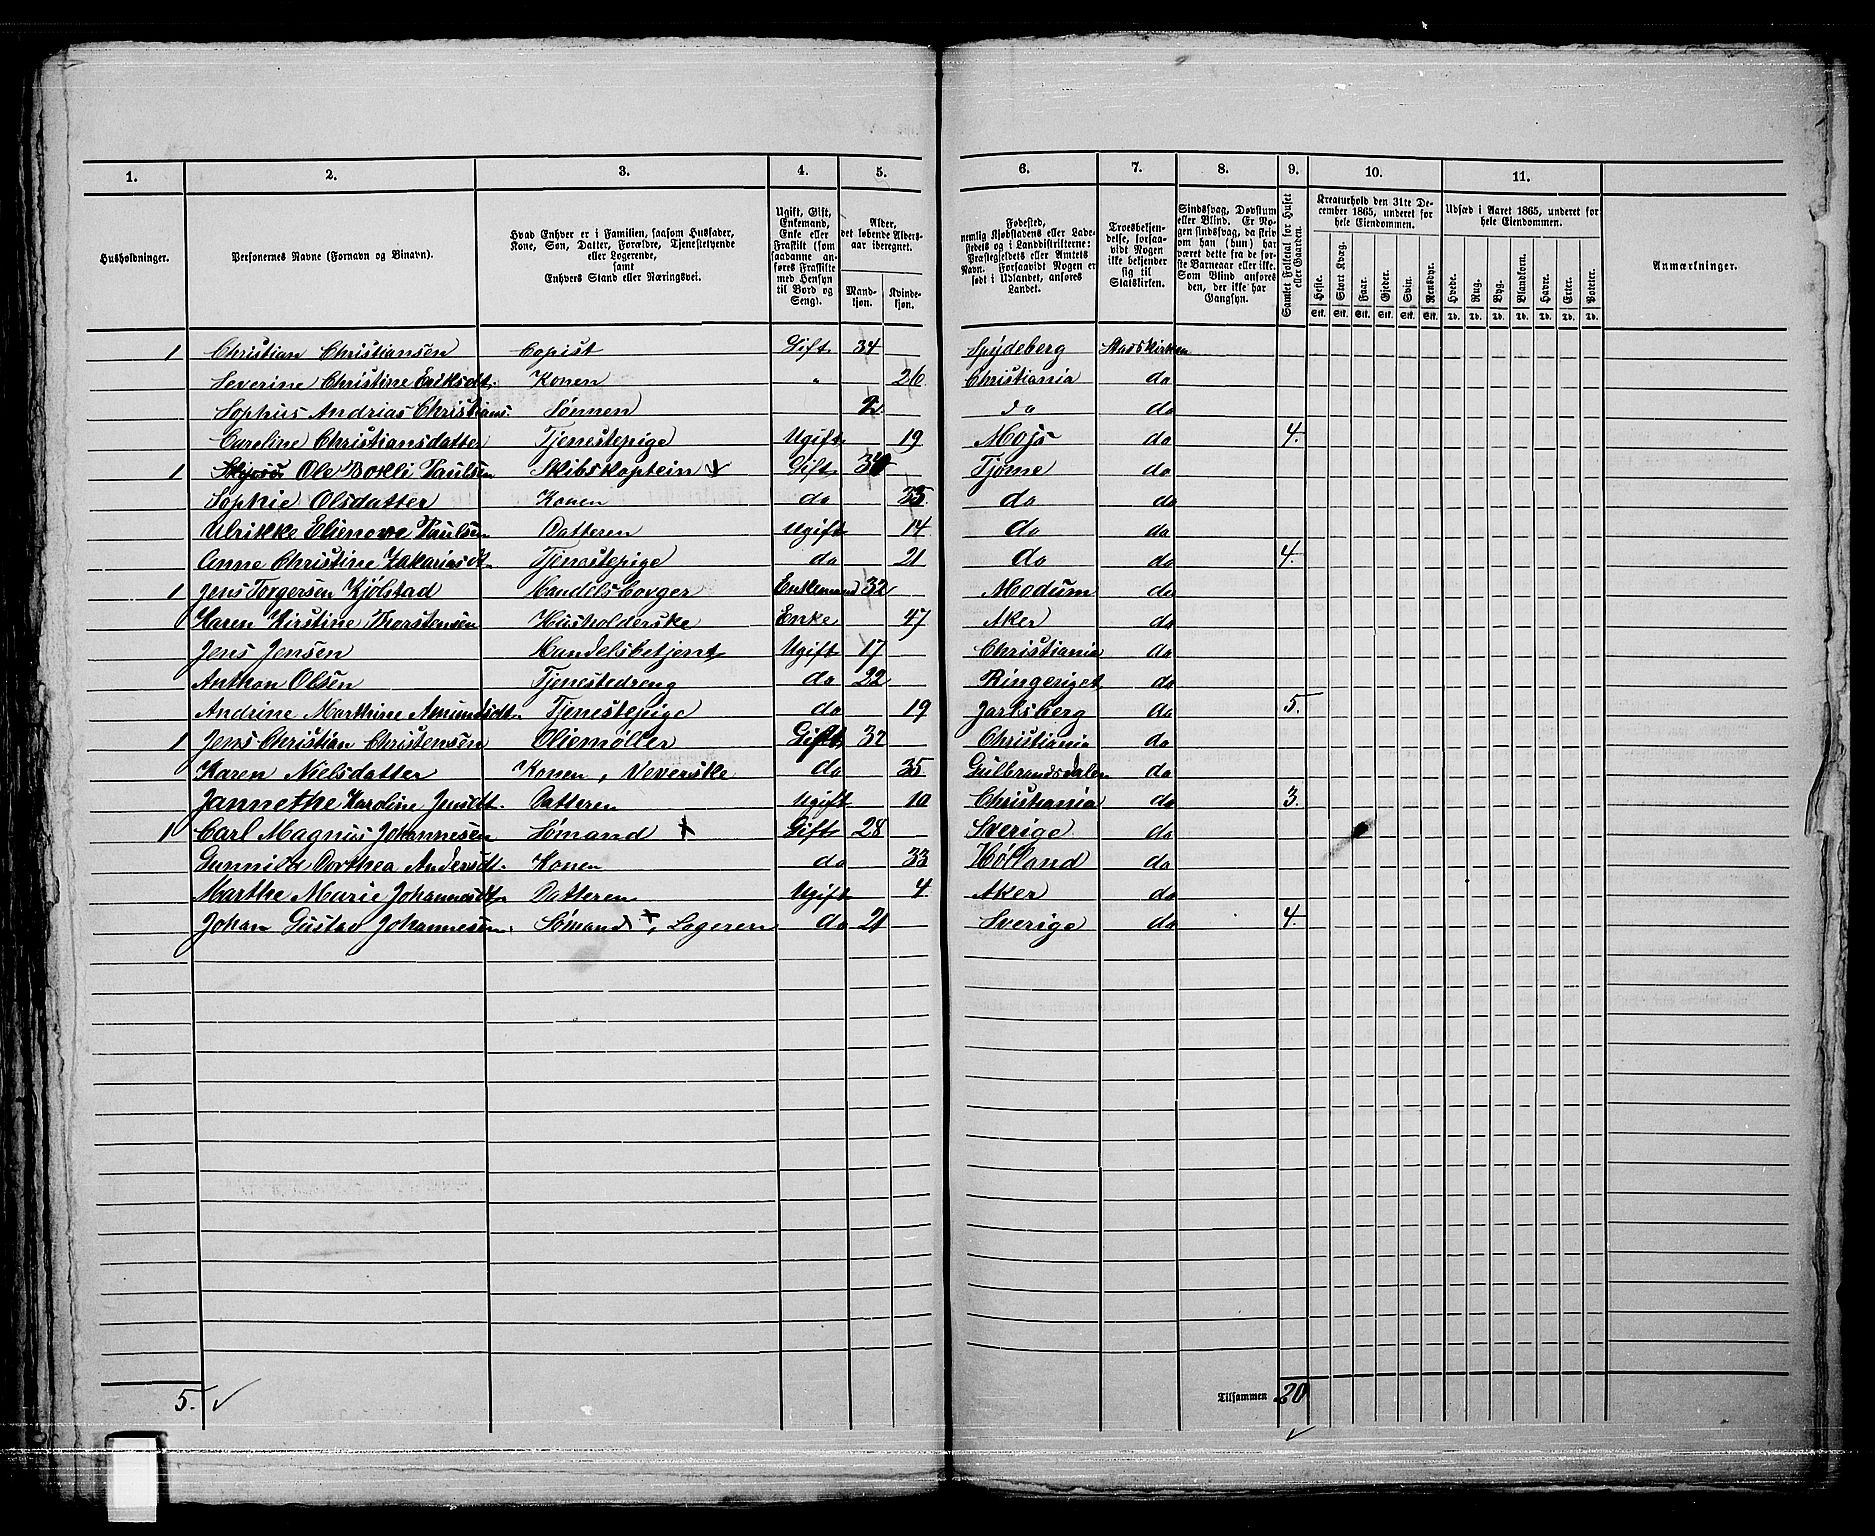 1. 2. 3. 4. 5. 6. 7. 8. 9. 10. 11.
Husholdninger.
Personernes Navne (Fornavn og Binavn).
Hvad Enhver er i Familien, saasom Husfader, Kone, Søn, Datter, Forældre, Tjenestetyende eller Logerende, samt Enhvers Stand eller Næringsvei.
Ugift, Gift, Enkemand, Enke eller Fraskilt (som saadanne anføres Fraskilte med Hensyn til Bord og Seng).
Alder, det løbende Aldersaar iberegnet.
Mandkjøn. Kvindekjøn.
Fødested, nemlig Kjøbstadens eller Ladestedets og i Landdistrikterne: Præstegjeldets eller Amtets Navn. Forsaavidt Nogen er født i Udlandet, anføres Landet.
Troesbekjendelse, forsaavidt Nogen ikke bekjender sig til Statskirken.
Sindssvag, Døvstum eller Blind. Er Nogen sindssvag, da skrives om han (hun) har været dette fra de første Barneaar eller ikke. Som Blind anføres den, der ikke har Gangsyn.
Samlet Folketal for Huset eller Gaarden.
Kreaturhold den 31te December 1865, underet for hele Eiendommen.
Heste. Stort Kvæg. Faar. Gjeder. Svin. Rensdyr.
Stk. Stk. Stk. Stk. Stk. Stk.
Udsæd i Aaret 1865, underet for hele Eiendommen.
Hvede. Rug. Byg. Blandkorn. Havre. Erter. Poteter.
Td. Td. Td. Td. Td. Td. Td.
Anmærkninger.
1 Christian Christiansen Copist Gift 34 Spydeberg Statskirken
Severine Christine Eriksdt. Konen " 26 Christiania do
Sophus Andrias Christians. Sønnen 2 do do
Careline Christiansdatter Tjenestepige Ugift 19 Mojs do 4.
1 Ole Bokli Paulsen Skibskaptein Gift 30 Tjøme do
Sophie Olsdatter Konen do 35 do do
Ulrikke Elienore Paulsen Datteren Ugift 14 do do
Anne Christine Zakariasdt. Tjenestepige do 21 do do 4.
1 Jens Torgersen Kjølstad Handelsborger Enkemand 32 Modum do
1 Karen Kirstine Thorstensen Husholderske Enke 47 Aker do
Jens Jensen Handelsbetjent Ugift 17 Christiania do
Anthon Olsen Tjenestedreng do 22 Ringeriget do
Andrine Marthine Amundsdt. Tjenestepige do 19 Jarlsberg do 5.
1 Jens Christian Christensen Oliemøller Gift 37 Christiania do
Karen Nielsdatter Konen, Veverske do 35 Gulbrandsdalen do
Jannethe Karoline Jensdt. Datteren Ugift 10 Christiania do 3.
1 Carl Magnus Johannesen Sømand x Gift 28 Sverige do
Dorthea Andersdt. Konen do 33 Høland do
Marthe Marie Johannesdt. Datteren Ugift 4. Aker do
Johan Gustav Johannesen. Sømand x, Logeren do 21 Sverige do 4.
5. Tilsammen 20